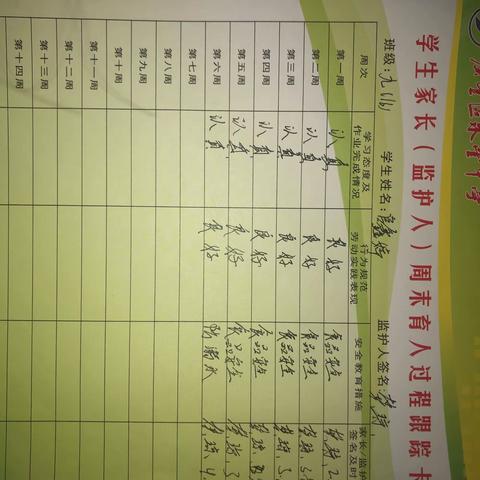 学生家长（监护人）周末育人过程跟踪卡
班级：九（16） 学生姓名： 监护人签名：
周次 学习态度及作业完成情况 行为规范劳动实践表现 安全教育措施 家长/监护 签名及时
第一周 认真 良好 食品安全
第二周 认真 良好 食品安全
第三周 认真 良好 食品安全
第四周 认真 良好 食品安全
第五周 认真 良好 食品安全
第六周 认真 良好 防溺水
第七周
第八周
第九周
第十周
第十一周
第十二周
第十三周
第十四周